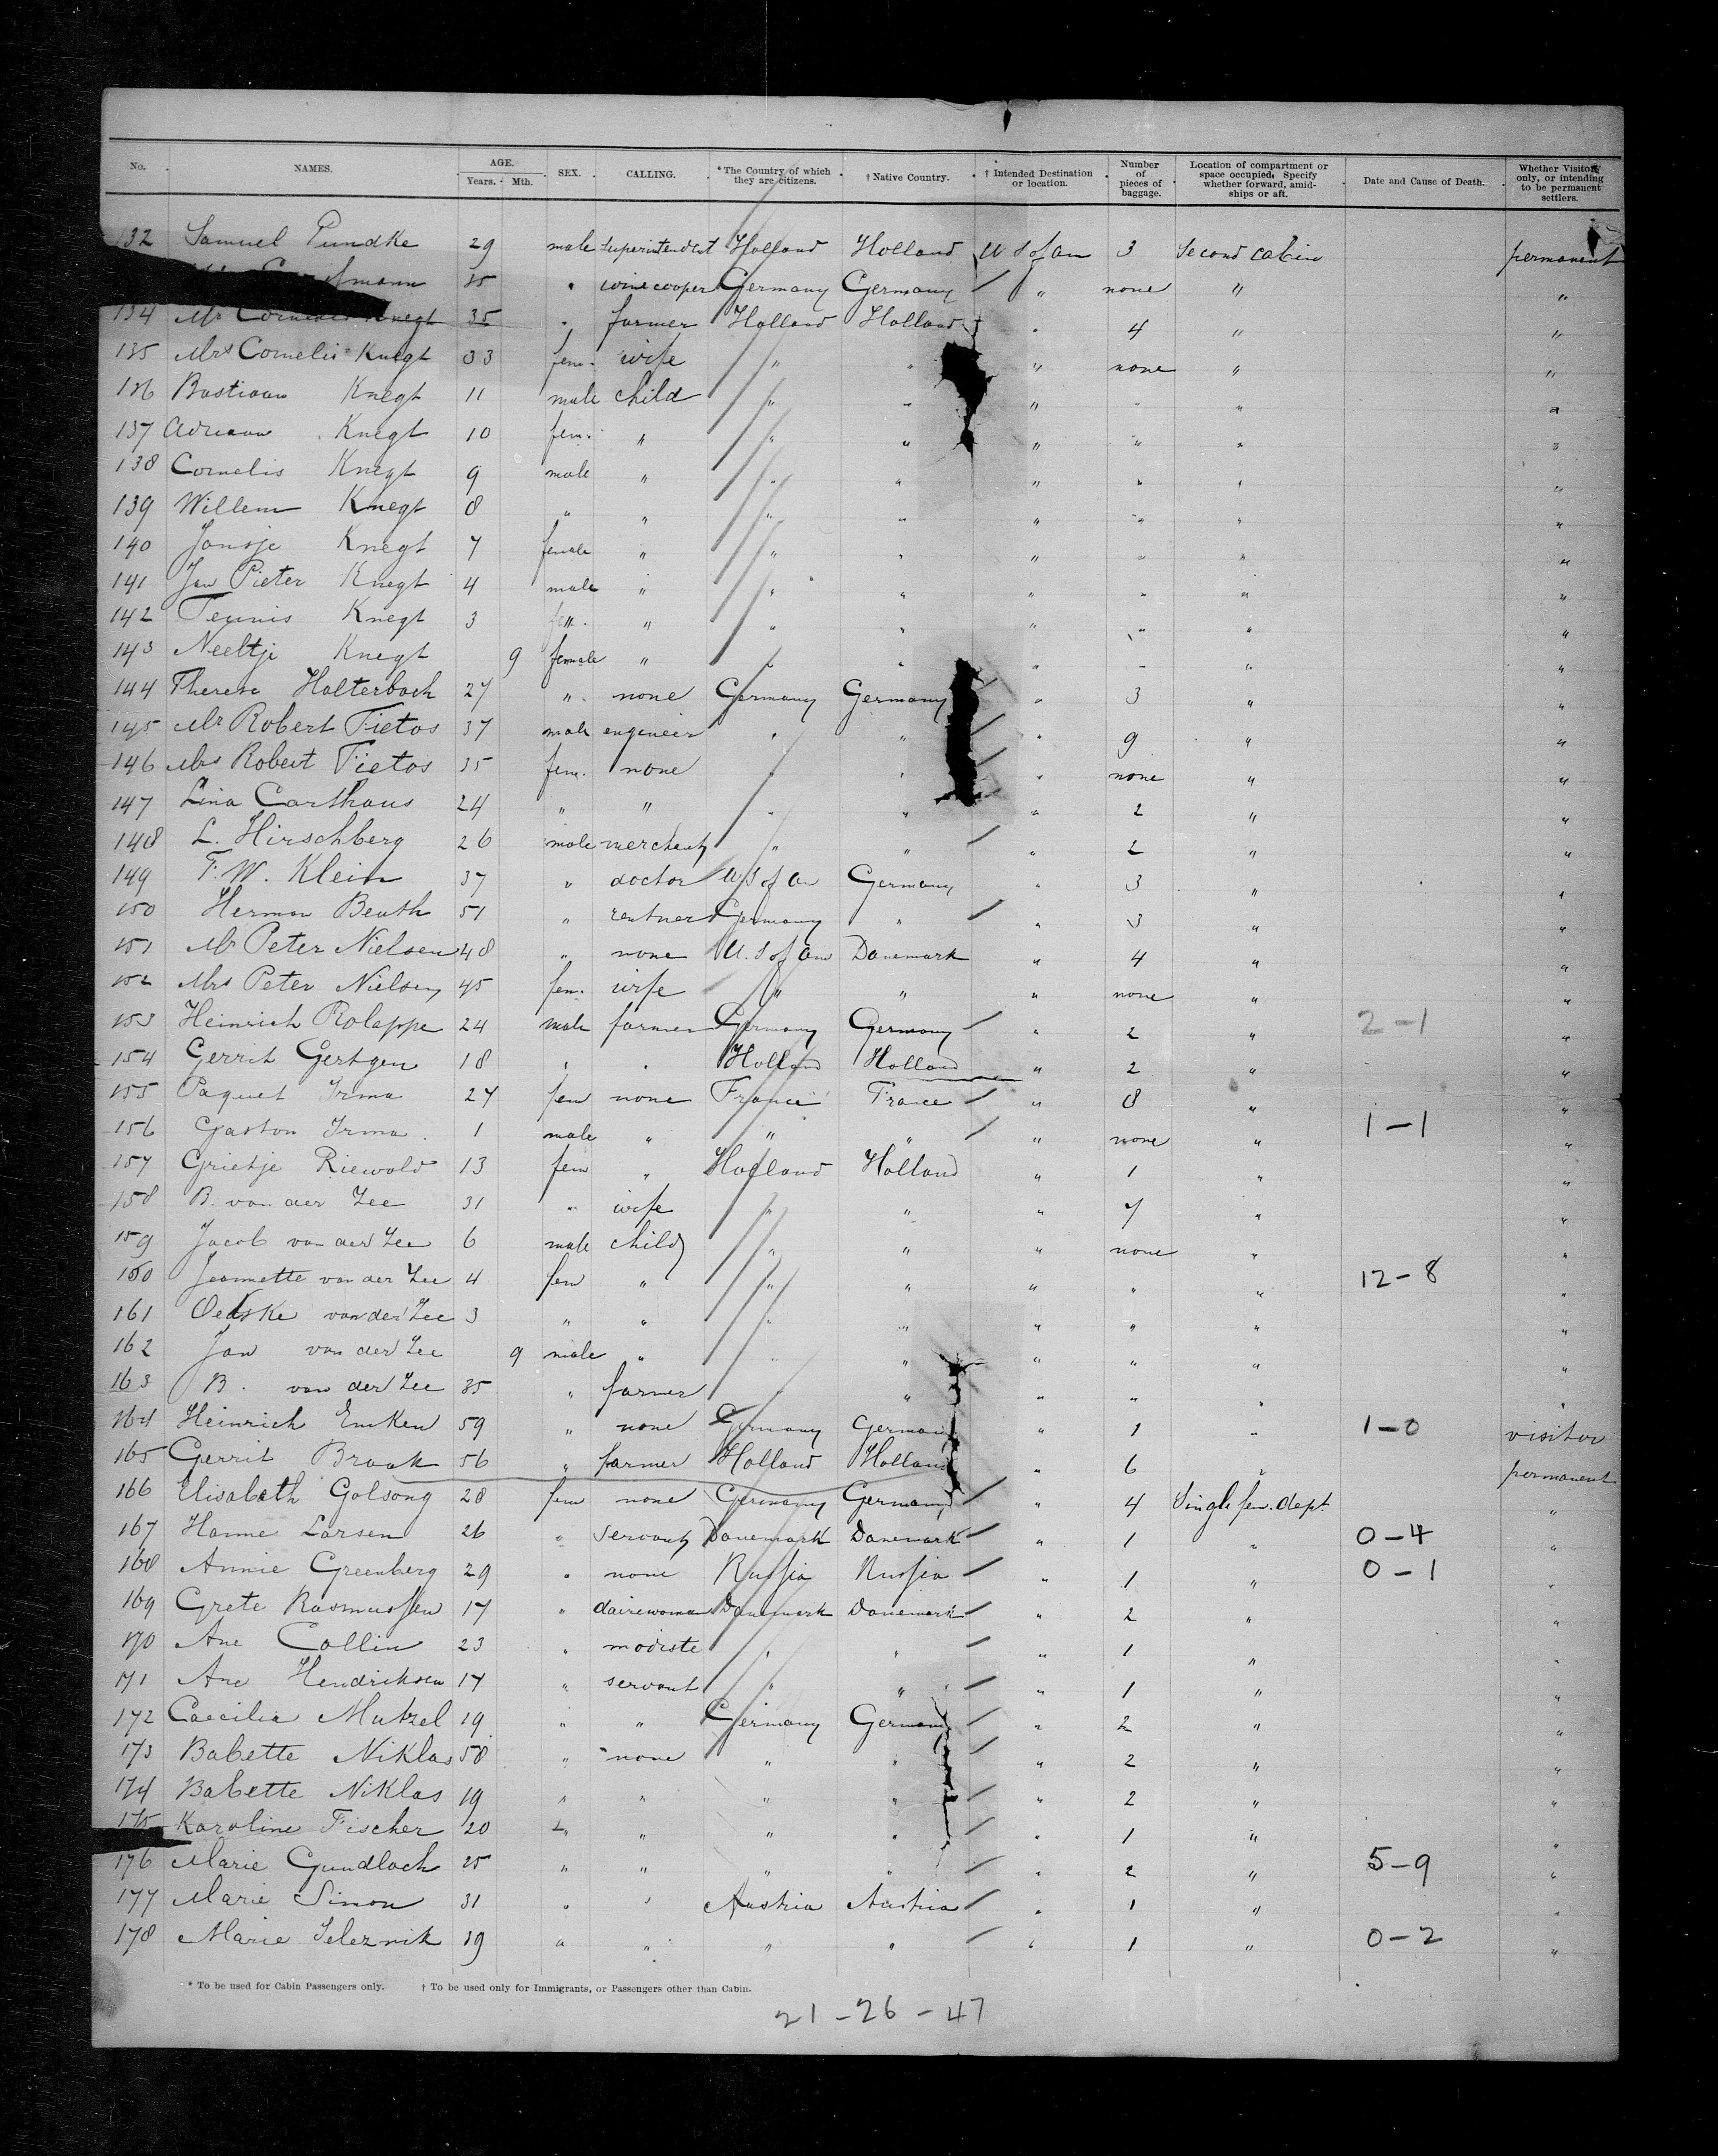 No. NAMES. AGE. Years. Mth. SEX. CALLING. *The Country of which they are citizens. †Native Country. †Intended Destination or location. Number of pieces of baggage. Location of compartment or space occupied. Specify whether forward, amidships or aft. Date and Cause of Death. Whether Visitors only, or intending to be permanent settlers.
132 Samuel Pundke 29 male superintendent Holland Holland U S of Am 3 Second cabin permanent
mann 35 " wine cooper Germany Germany " none " "
134 Mr Cornelis Knegt 35 " farmer Holland Holland " 4 " "
135 Mrs Cornelis Knegt 33 fem. wife " " " none " "
136 Bastiaan Knegt 11 male child " " " " " "
137 Adriaan Knegt 10 fem. " " " " " " "
138 Cornelis Knegt 9 male " " " " " " "
139 Willem Knegt 8 " " " " " " " "
140 Jansje Knegt 7 female " " " " " " "
141 Jan Pieter Knegt 4 male " " " " " " "
142 Teunis Knegt 3 fem. " " " " " " "
143 Neeltje Knegt 9 female " " " " " " "
144 Therese Halterbach 27 " none Germany Germany " 3 " "
145 Mr Robert Tietos 37 male engineer " " " 9 " "
146 Mrs Robert Tietos 35 fem. none " " " none " "
147 Lina Carthaus 24 " " " " " 2 " "
148 L. Hirschberg 26 male merchant " " " 2 " "
149 F. W. Klein 37 " doctor U S of Am Germany " 3 " "
150 Herman Beuth 51 " rentner Germany " " 3 " "
151 Mr Peter Nielsen 48 " none U. S of Am Danemark " 4 " "
152 Mrs Peter Nielsen 45 fem. wife " " " none " "
153 Heinrich Rolappe 24 male farmer Germany Germany " 2 " 2-1 "
154 Gerrit Gertgen 18 " " Holland Holland " 2 " "
155 Paquet Irma 27 fem none France France " 8 " "
156 Gaston Irma 1 male " " " " none " 1-1 "
157 Grietje Riewald 13 fem " Holland Holland " 1 " "
158 B. van der Zee 31 " wife " " " 7 " "
159 Jacob van der Zee 6 male child " " " none " "
160 Jeannette van der Zee 4 fem " " " " " " 12-8 "
161 Oedske van der Zee 3 " " " " " " " "
162 Jan van der Zee 9 male " " " " " " "
163 B. van der Zee 35 " farmer " " " " " "
164 Heinrich Emken 59 " none Germany Germany " 1 " 1-0 visitor
165 Gerrit Braak 56 " farmer Holland Holland " 6 " permanent
166 Elisabeth Golsong 28 fem none Germany Germany " 4 Single fem. dept. "
167 Hanne Larsen 26 " servant Danemark Danemark " 1 " 0-4 "
168 Annie Greenberg 29 " none Russia Russia " 1 " 0-1 "
169 Grete Rasmussen 17 " dairewoman Danemark Danemark " 2 " "
170 Ane Collin 23 " modiste " " " 1 " "
171 Ane Hendriksen 17 " servant " " " 1 " "
172 Caecilia Mutzel 19 " " Germany Germany " 2 " "
173 Babette Niklas 58 " none " " " 2 " "
174 Babette Niklas 19 " " " " " 2 " "
175 Karoline Fischer 20 " " " " " 1 " "
176 Marie Gundlach 25 " " " " " 2 " 5-9 "
177 Marie Simon 31 " " Austria Austria " 1 " "
178 Marie Seleznik 19 " " " " " 1 " 0-2 "
* To be used for Cabin Passengers only. † To be used only for Immigrants, or Passengers other than Cabin.
21-26-47